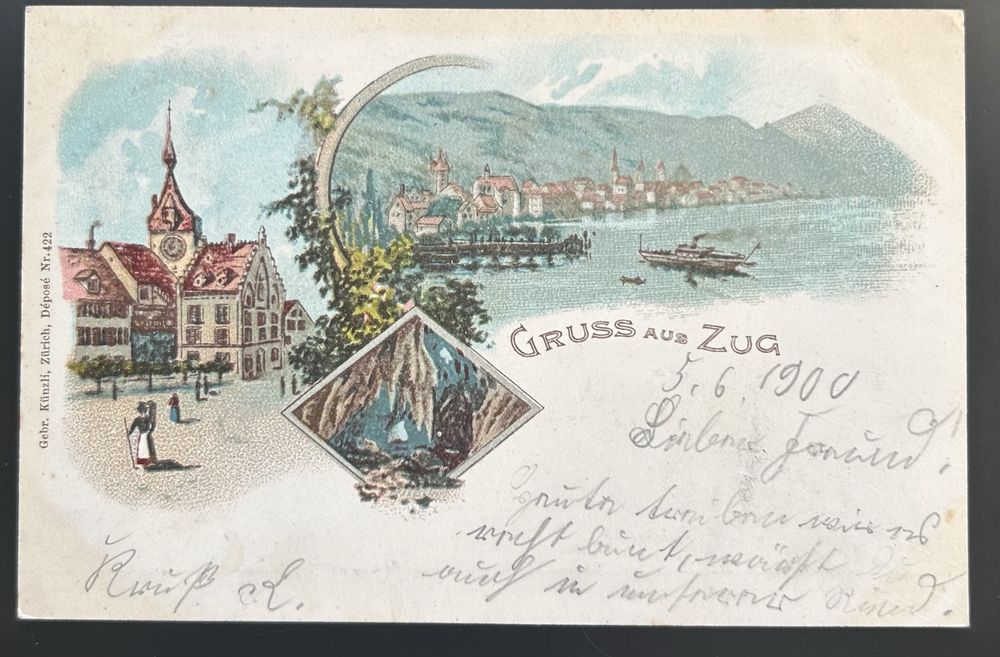 Gebr. Künzli, Zürich, Déposé Nr. 422
GRUSS AUS ZUG
5. 6. 1900
Lieber Freund!
Heute treiben wir es
recht bunt, wärst Du
auch in unserer
Gruß